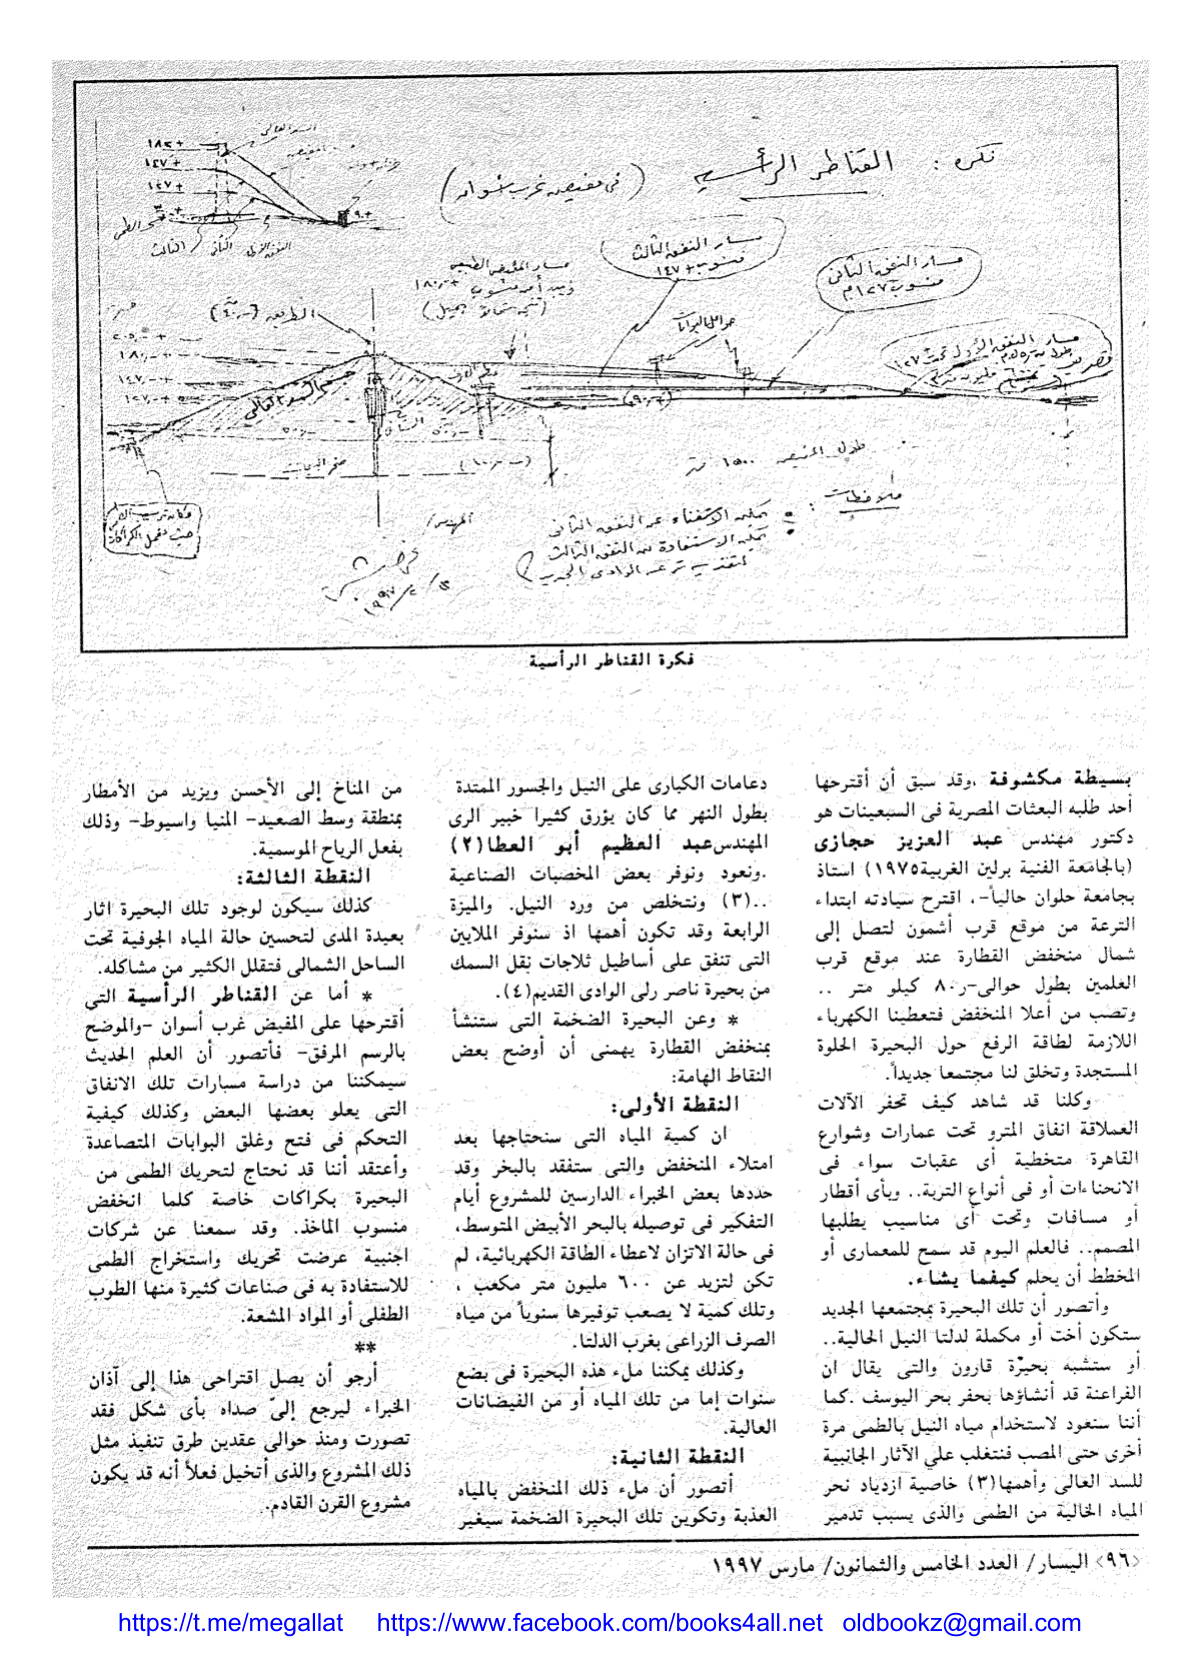 فكرة : القناطر الرأسية (فى مفيض غرب أسوان)
السد العالى
+١٨٢
+١٤٧
+١٢٧
+٩٠
الثالث
الثانى
مسار النفق الثالث
منسوب +١٤٧
مسار النفق الثانى
منسوب ١٢٧م
مسار المفيض الطبيعى
جسم السد العالى
طول المفيض ١٥٠٠ متر
ملاحظات :
يمكن الاستغناء عن النفق الثانى
يمكن الاستفادة من النفق الثالث
المهندس/
فكرة القناطر الرأسية
بسيطة مكشوفة .وقد سبق أن أقترحها
أحد طلبه البعثات المصرية فى السبعينات هو
دكتور مهندس عبد العزيز حجازى
(بالجامعة الفنية برلين الغربية١٩٧٥) استاذ
بجامعة حلوان حالياً-، اقترح سيادته ابتداء
الترعة من موقع قرب أشمون لتصل إلى
شمال منخفض القطارة عند موقع قرب
العلمين بطول حوالى-ر٨٠ كيلو متر ..
وتصب من أعلا المنخفض فتعطينا الكهرباء
اللازمة لطاقة الرفع حول البحيرة الحلوة
المستجدة وتخلق لنا مجتمعا جديداً.
وكلنا قد شاهد كيف تحفر الآلات
العملاقة انفاق المترو تحت عمارات وشوارع
القاهرة متخطية أى عقبات سواء فى
الانحناءات أو فى أنواع التربة.. وبأى أقطار
أو مسافات وتحت أى مناسيب يطلبها
المصمم.. فالعلم اليوم قد سمح للمعمارى أو
المخطط أن يحلم كيفما يشاء.
وأتصور أن تلك البحيرة بمجتمعها الجديد
ستكون أخت أو مكملة لدلتا النيل الحالية..
أو ستشبه بحيرة قارون والتى يقال ان
الفراعنة قد أنشاؤها بحفر بحر اليوسف .كما
أننا سنعود لاستخدام مياه النيل بالطمى مرة
أخرى حتى المصب فنتغلب علي الآثار الجانبية
للسد العالى وأهمها(٣) خاصية ازدياد نحر
المياه الخالية من الطمى والذى يسبب تدمير
دعامات الكبارى على النيل والجسور الممتدة
بطول النهر مما كان يؤرق كثيرا خبير الرى
المهندس عبد العظيم أبو العطا(٢)
.ونعود ونوفر بعض المخصبات الصناعية
..(٣) ونتخلص من ورد النيل. والميزة
الرابعة وقد تكون أهمها اذ سنوفر الملايين
التى تنفق على أساطيل ثلاجات نقل السمك
من بحيرة ناصر رلى الوادى القديم(٤).
* وعن البحيرة الضخمة التى ستنشأ
بمنخفض القطارة يهمنى أن أوضح بعض
النقاط الهامة:
النقطة الأولى:
ان كمية المياه التى سنحتاجها بعد
امتلاء المنخفض والتى ستفقد بالبخر وقد
حددها بعض الخبراء الدارسين للمشروع أيام
التفكير فى توصيله بالبحر الأبيض المتوسط،
فى حالة الاتزان لاعطاء الطاقة الكهربائية، لم
تكن لتزيد عن ٦٠٠ مليون متر مكعب ،
وتلك كمية لا يصعب توفيرها سنوياً من مياه
الصرف الزراعى بغرب الدلتا.
وكذلك يمكننا ملء هذه البحيرة فى بضع
سنوات إما من تلك المياه أو من الفيضانات
العالية.
النقطة الثانية:
أتصور أن ملء ذلك المنخفض بالمياه
العذبة وتكوين تلك البحيرة الضخمة سيغير
من المناخ إلى الأحسن ويزيد من الأمطار
بمنطقة وسط الصعيد- المنيا واسيوط- وذلك
بفعل الرياح الموسمية.
النقطة الثالثة:
كذلك سيكون لوجود تلك البحيرة اثار
بعيدة المدى لتحسين حالة المياه الجوفية تحت
الساحل الشمالى فتقلل الكثير من مشاكله.
* أما عن القناطر الرأسية التى
أقترحها على المفيض غرب أسوان -والموضح
بالرسم المرفق- فأتصور أن العلم الحديث
سيمكننا من دراسة مسارات تلك الانفاق
التى يعلو بعضها البعض وكذلك كيفية
التحكم فى فتح وغلق البوابات المتصاعدة
وأعتقد أننا قد نحتاج لتحريك الطمى من
البحيرة بكراكات خاصة كلما انخفض
منسوب الماخذ. وقد سمعنا عن شركات
اجنبية عرضت تحريك واستخراج الطمى
للاستفادة به فى صناعات كثيرة منها الطوب
الطفلى أو المواد المشعة.
**
أرجو أن يصل اقتراحى هذا إلى آذان
الخبراء ليرجع إلىّ صداه بأى شكل فقد
تصورت ومنذ حوالى عقدين طرق تنفيذ مثل
ذلك المشروع والذى أتخيل فعلاً أنه قد يكون
مشروع القرن القادم.
<٩٦> اليسار/ العدد الخامس والثمانون/ مارس ١٩٩٧
https://t.me/megallat https://www.facebook.com/books4all.net oldbookz@gmail.com